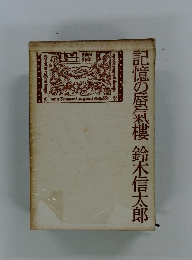 記憶の蜃氣樓 鈴木信太郎